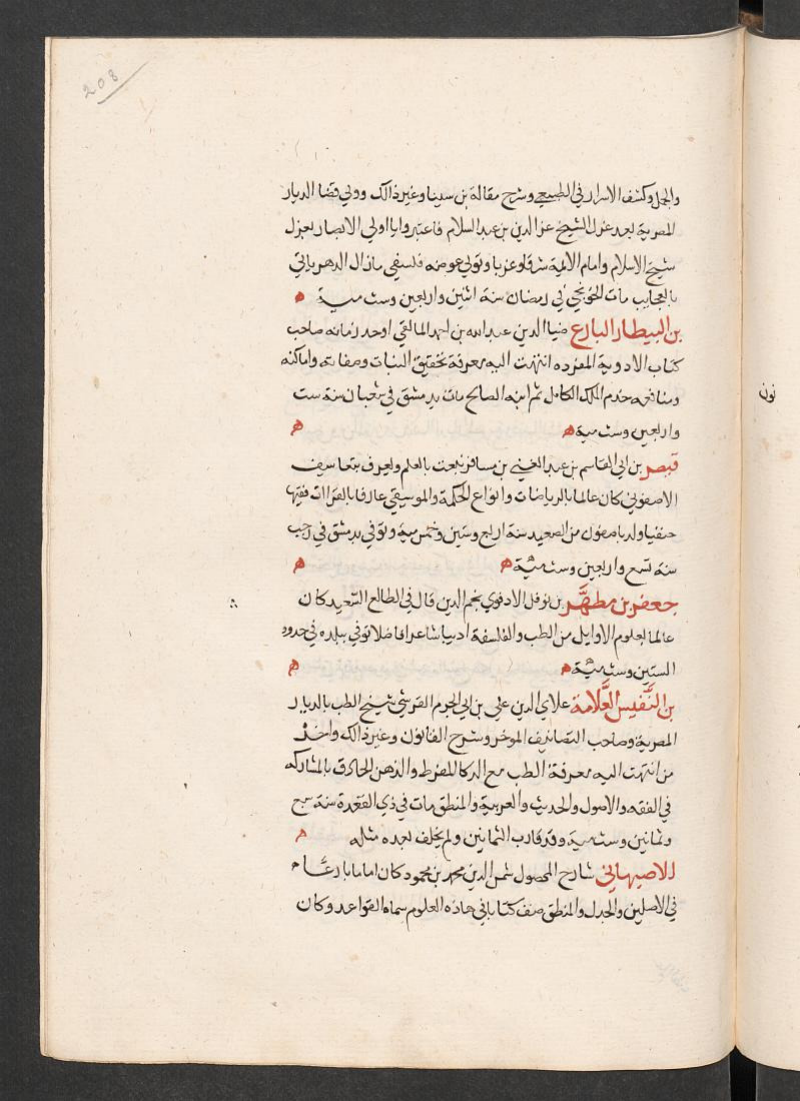 208
والجمل وكشف الاسرار في الطبيعي وشرح مقالة بن سينا وغير ذالك وولي قضا الديار
المصرية بعد عزل الشيخ عز الدين بن عبد السلام فاعتبروا يا اولي الابصار بعزل
شيخ الاسلام وامام الايمة شرقا وغربا وتولي عوضه فلسفي مازال الدهر ياتي
بالعجايب مات الخونجي في رمضان سنة اثنين واربعين وست مية ه
بن البيطار البارع ضيا الدين عبد الله بن احمد المالقي اوحد زمانه صاحب
كتاب الادوية المفرده انتهت اليه معرفة تحقيق النبات وصفاته واماكنه
ومنافعه خدم الملك الكامل ثم ابنه الصالح مات بدمشق في شعبان سنة ست
واربعين وست مية ه ه
قيصر بن ابي القاسم بن عبد الغني بن مسافر نبعت بالعلم ويعرف بتعاسيف
الاصفوني كان عالما بالرياضات وانواع الحكمة والموسيقي عارفا بالقراات فقيها
حنفيا ولد باصفون من الصعيد سنة اربع وستين وخمس مية وتوفي بدمشق في رجب
سنة تسع واربعين وست مية ه ه
جعفر بن مطهر بن نوفل الادفوي نجم الدين قال في الطالع السعيد كان
عالما بعلوم الاوايل من الطب والفلسفة اديبا شاعرا فاضلا توفي ببلده في حدود
الستين وست مية ه ه
بن النفيس العلامة علاي الدين علي بن ابي الحرم القرشي شيخ الطب بالديار
المصرية وصاحب التصانيف الموجز وشرح القانون وغير ذالك واحد
من انتهت اليه معرفة الطب مع الذكا المفرط والذهن الحاذق بالمشاركه
في الفقه والاصول والحديث والعربية والمنطق مات في ذي القعدة سنة سبع
وثمانين وست مية وقد قارب الثمانين ولم يخلف بعده مثله ه
الاصبهاني شارح المحصول شمس الدين محمد بن محمود كان اماما بارعا
في الاصلين والجدل والمنطق صنف كتابا في هاذه العلوم سماه القواعد وكان
نون